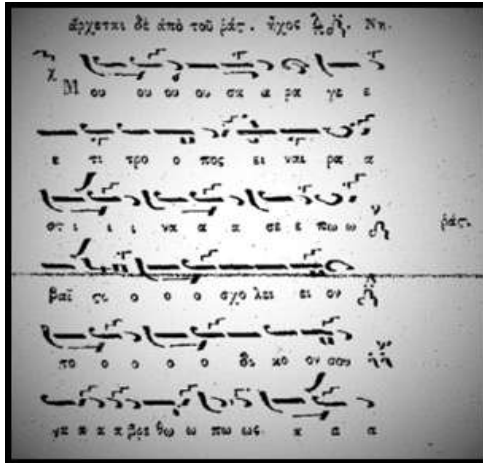 ἄρχεται δὲ ἀπὸ τοῦ ῥάς. ἦχος Νη.
Μ ου ου ου ου σα α ρα γε ε
ε τι τρο ο πος ει ναι ρα α
στ ι ι ι να α α σὲ ε πω ω
ῥάς.
βαῖ ςι ο ο ο σχο λει ει ον
πο ο ο ο ο δι κο ον σου
γα α α α βρε θω ω πω ως α α α